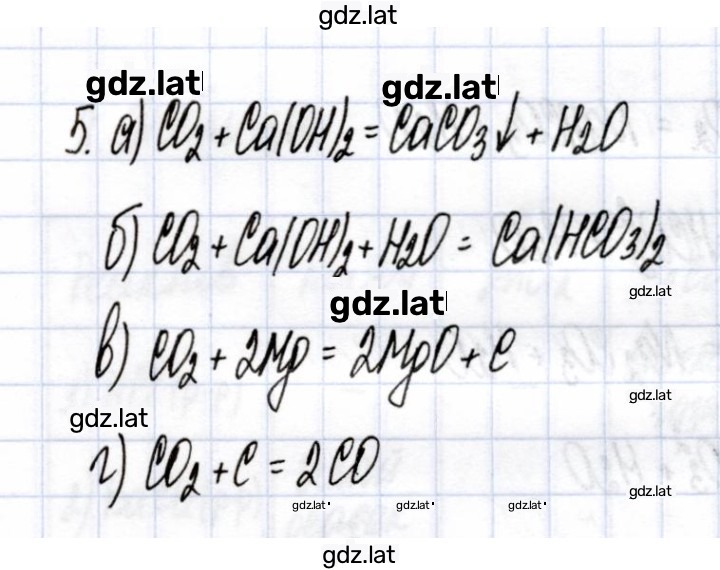 gdz.lat
gdz.lat gdz.lat
5. а) CO₂ + Ca(OH)₂ = CaCO₃↓ + H₂O
б) CO₂ + Ca(OH)₂ + H₂O = Ca(HCO₃)₂
gdz.lat
gdz.lat
в) CO₂ + 2Mg = 2MgO + C
gdz.lat
gdz.lat
г) CO₂ + C = 2CO
gdz.lat
gdz.lat gdz.lat gdz.lat
gdz.lat